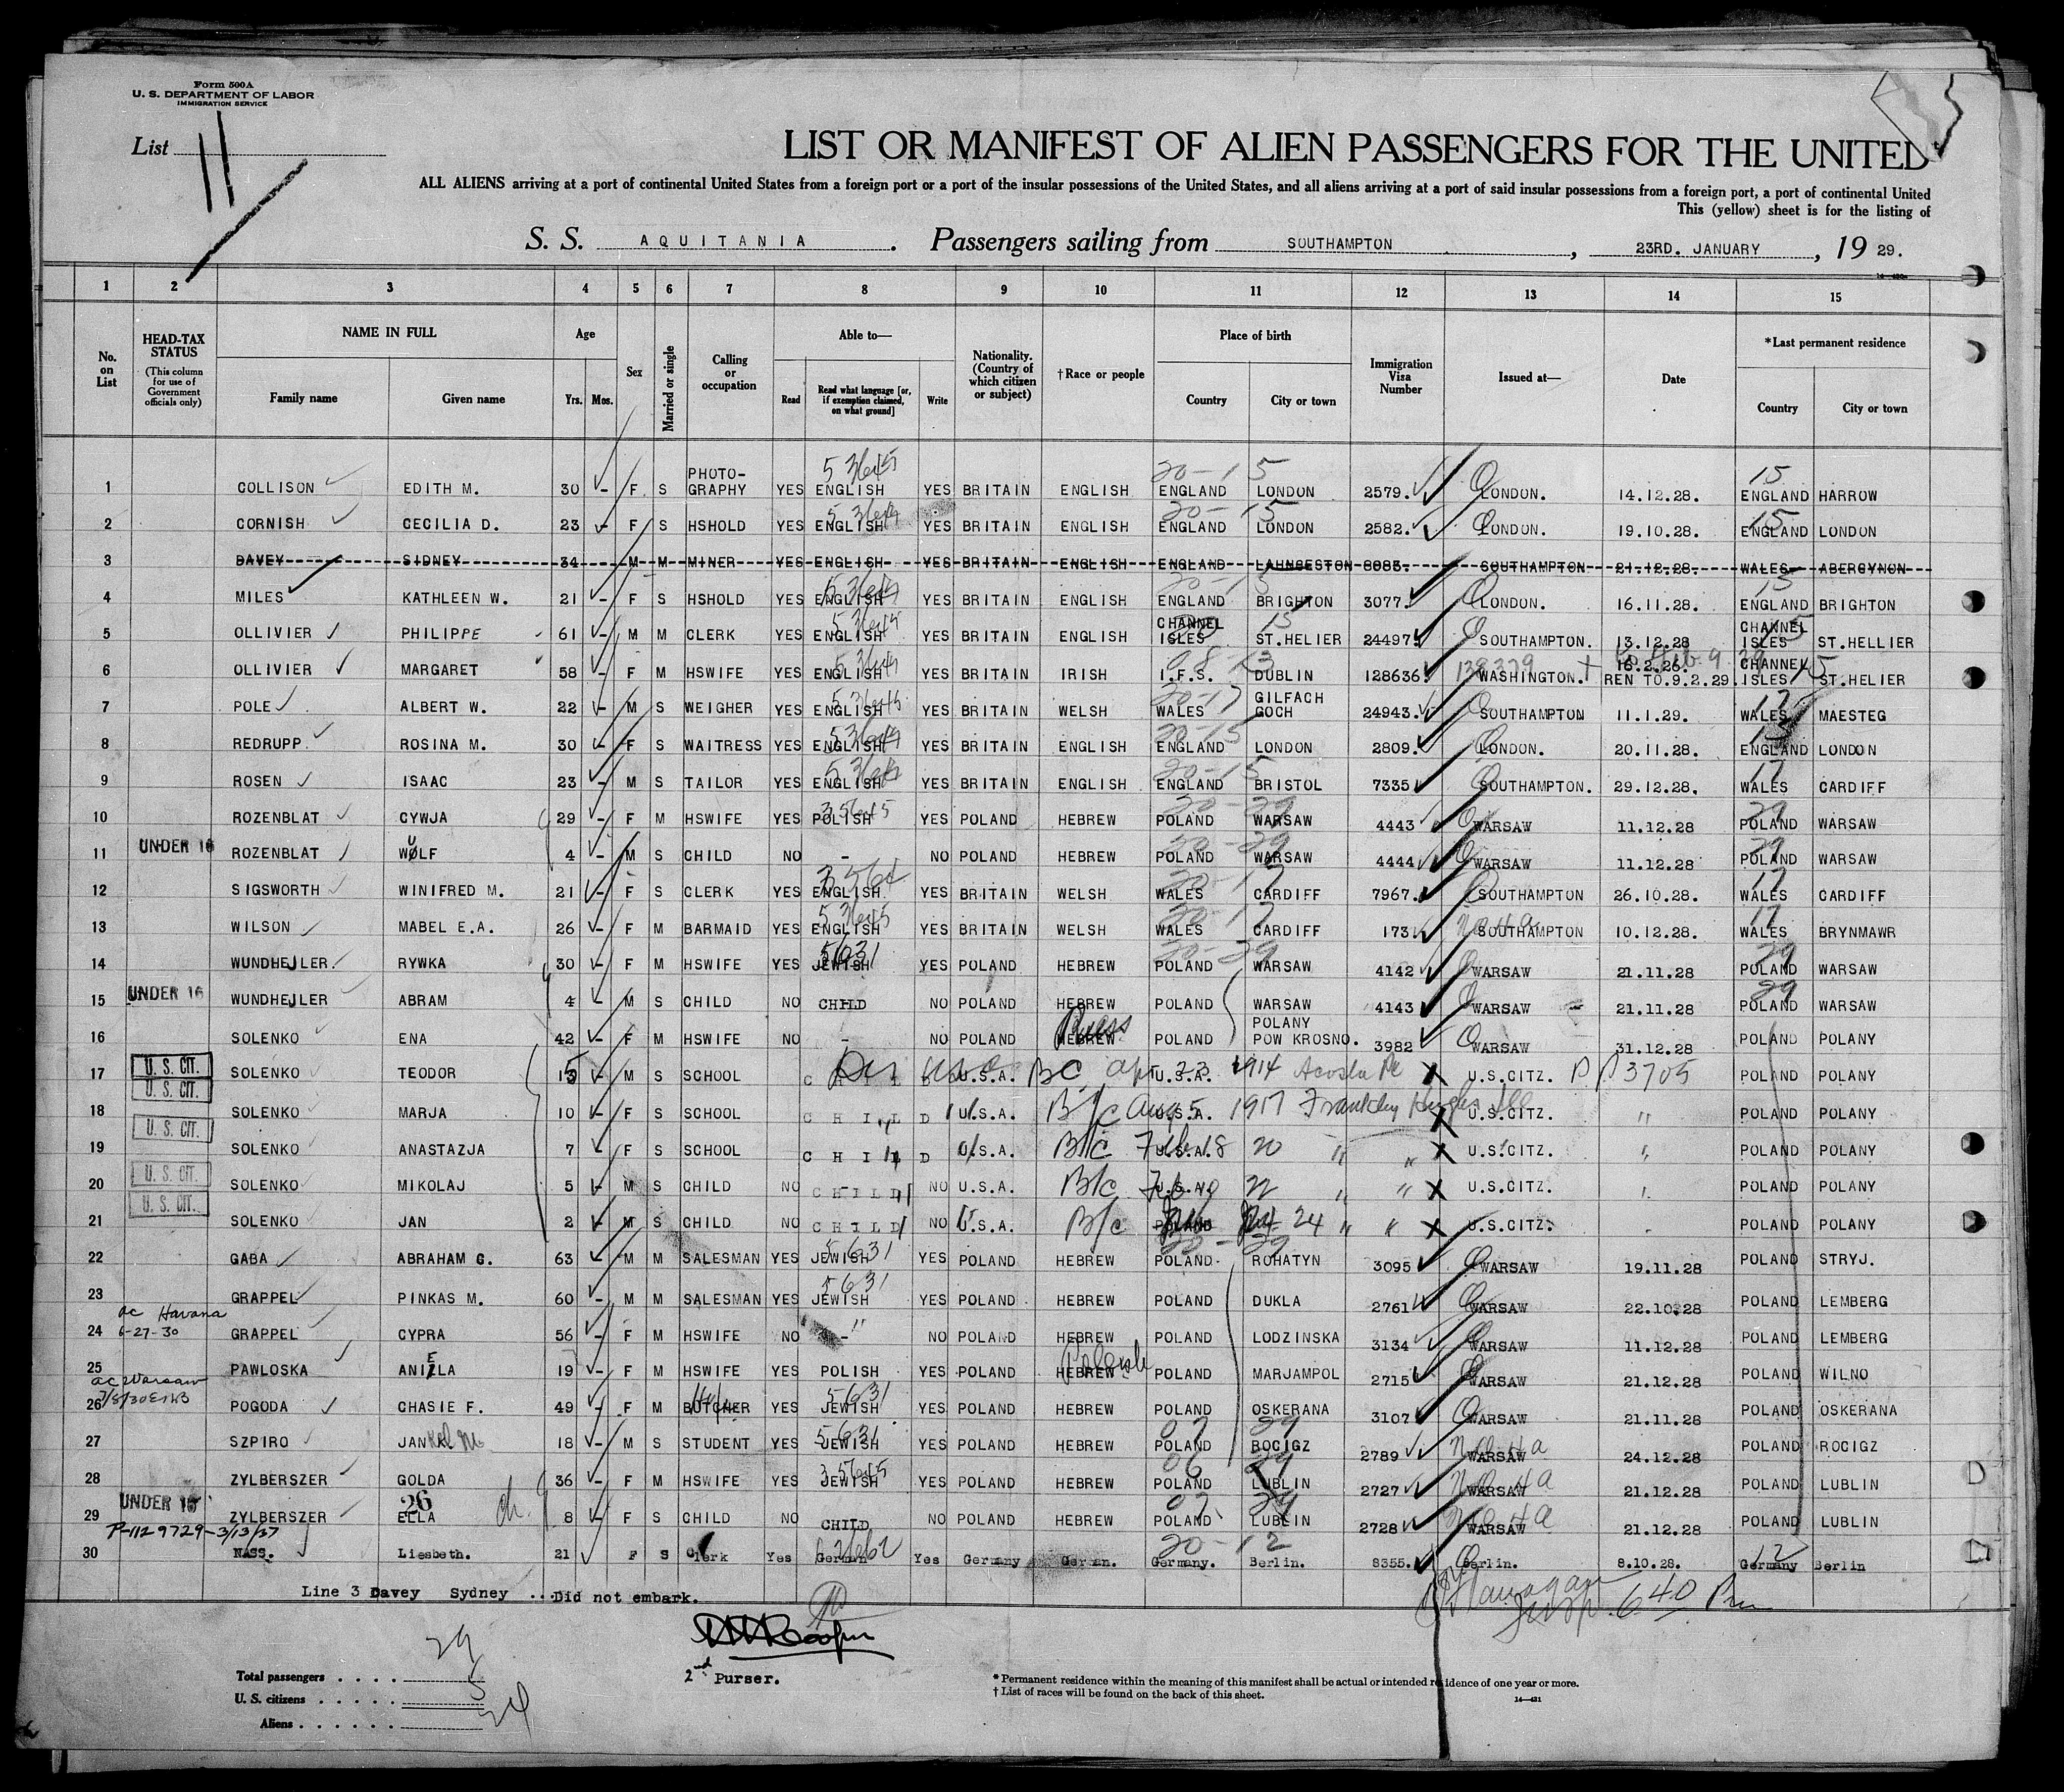 Form 500A
U. S. DEPARTMENT OF LABOR
IMMIGRATION SERVICE
List 11
LIST OR MANIFEST OF ALIEN PASSENGERS FOR THE UNITED
ALL ALIENS arriving at a port of continental United States from a foreign port or a port of the insular possessions of the United States, and all aliens arriving at a port of said insular possessions from a foreign port, a port of continental United
This (yellow) sheet is for the listing of
S. S. AQUITANIA. Passengers sailing from SOUTHAMPTON, 23RD. JANUARY, 19 29.
1 2 3 4 5 6 7 8 9 10 11 12 13 14 15
No. on List
HEAD-TAX STATUS (This column for use of Government officials only)
NAME IN FULL
Family name Given name
Age
Yrs. Mos.
Sex
Married or single
Calling or occupation
Able to—
Read Read what language [or, if exemption claimed, on what ground] Write
Nationality. (Country of which citizen or subject)
†Race or people
Place of birth
Country City or town
Immigration Visa Number
Issued at—
Date
*Last permanent residence
Country City or town
1 COLLISON EDITH M. 30 - F S PHOTO-GRAPHY YES ENGLISH YES BRITAIN ENGLISH ENGLAND LONDON 2579. LONDON. 14.12.28. ENGLAND HARROW
2 CORNISH CECILIA D. 23 - F S HSHOLD YES ENGLISH YES BRITAIN ENGLISH ENGLAND LONDON 2582. LONDON. 19.10.28. ENGLAND LONDON
3 DAVEY SIDNEY 34 M M MINER YES ENGLISH YES BRITAIN ENGLISH ENGLAND LAUNCESTON 8083. SOUTHAMPTON 21.12.28. WALES ABERCYNON
4 MILES KATHLEEN W. 21 - F S HSHOLD YES ENGLISH YES BRITAIN ENGLISH ENGLAND BRIGHTON 3077. LONDON. 16.11.28. ENGLAND BRIGHTON
5 OLLIVIER PHILIPPE 61 - M M CLERK YES ENGLISH YES BRITAIN ENGLISH CHANNEL ISLES ST.HELIER 24497. SOUTHAMPTON. 13.12.28 CHANNEL ISLES ST.HELLIER
6 OLLIVIER MARGARET 58 - F M HSWIFE YES ENGLISH YES BRITAIN IRISH I.F.S. DUBLIN 128636. 138379 WASHINGTON. 16.2.28. REN TO.9.2.29. CHANNEL ISLES ST.HELIER
7 POLE ALBERT W. 22 - M S WEIGHER YES ENGLISH YES BRITAIN WELSH WALES GILFACH GOCH 24943. SOUTHAMPTON 11.1.29. WALES MAESTEG
8 REDRUPP ROSINA M. 30 - F S WAITRESS YES ENGLISH YES BRITAIN ENGLISH ENGLAND LONDON 2809. LONDON. 20.11.28. ENGLAND LONDON
9 ROSEN ISAAC 23 - M S TAILOR YES ENGLISH YES BRITAIN ENGLISH ENGLAND BRISTOL 7335 SOUTHAMPTON. 29.12.28. WALES CARDIFF
10 ROZENBLAT CYWJA 29 - F M HSWIFE YES POLISH YES POLAND HEBREW POLAND WARSAW 4443 WARSAW 11.12.28 POLAND WARSAW
11 UNDER 16 ROZENBLAT WULF 4 - M S CHILD NO - NO POLAND HEBREW POLAND WARSAW 4444 WARSAW 11.12.28 POLAND WARSAW
12 SIGSWORTH WINIFRED M. 21 - F S CLERK YES ENGLISH YES BRITAIN WELSH WALES CARDIFF 7967. SOUTHAMPTON 26.10.28. WALES CARDIFF
13 WILSON MABEL E.A. 26 - F M BARMAID YES ENGLISH YES BRITAIN WELSH WALES CARDIFF 173 SOUTHAMPTON 10.12.28. WALES BRYNMAWR
14 WUNDHEJLER RYWKA 30 - F M HSWIFE YES JEWISH YES POLAND HEBREW POLAND WARSAW 4142 WARSAW 21.11.28 POLAND WARSAW
15 UNDER 16 WUNDHEJLER ABRAM 4 - M S CHILD NO CHILD NO POLAND HEBREW POLAND WARSAW 4143 WARSAW 21.11.28 POLAND WARSAW
16 SOLENKO ENA 42 - F M HSWIFE NO - NO POLAND HEBREW Russ POLAND POLANY POW KROSNO. 3982 WARSAW 31.12.28 POLAND POLANY
17 U. S. CIT. SOLENKO TEODOR 15 - M S SCHOOL U.S.A. BC apr 23 U.S.A. 1914 Acosta Pa U.S.CITZ. PP 3705 POLAND POLANY
18 U. S. CIT. SOLENKO MARJA 10 - F S SCHOOL CHILD U.S.A. B/c Aug 5 U.S.A. 1917 U.S.CITZ. " POLAND POLANY
19 U. S. CIT. SOLENKO ANASTAZJA 7 - F S SCHOOL CHILD U.S.A. B/c U.S.A. 20 " " U.S.CITZ. " POLAND POLANY
20 U. S. CIT. SOLENKO MIKOLAJ 5 - M S CHILD NO CHILD NO U.S.A. B/c U.S.A. 22 " " U.S.CITZ. " POLAND POLANY
21 U. S. CIT. SOLENKO JAN 2 - M S CHILD NO CHILD NO U.S.A. B/c POLAND 24 " " U.S.CITZ. POLAND POLANY
22 GABA ABRAHAM G. 63 - M M SALESMAN YES JEWISH YES POLAND HEBREW POLAND. ROHATYN 3095 WARSAW 19.11.28 POLAND STRYJ.
23 GRAPPEL PINKAS M. 60 - M M SALESMAN YES JEWISH YES POLAND HEBREW POLAND DUKLA 2761 WARSAW 22.10.28 POLAND LEMBERG
ac Havana
6-27-30
24 GRAPPEL CYPRA 56 - F M HSWIFE NO - NO POLAND HEBREW POLAND LODZINSKA 3134 WARSAW 11.12.28 POLAND LEMBERG
25 PAWLOSKA ANIELA 19 - F M HSWIFE YES POLISH YES POLAND HEBREW Polish POLAND MARJAMPOL 2715 WARSAW 21.12.28 POLAND WILNO
ac Warsaw
26 POGODA CHASIE F. 49 - F M BUTCHER YES JEWISH YES POLAND HEBREW POLAND OSKERANA 3107 WARSAW 21.11.28 POLAND OSKERANA
27 SZPIRO JANkel M 18 - M S STUDENT YES JEWISH YES POLAND HEBREW POLAND ROCIGZ 2789 WARSAW 24.12.28 POLAND ROCIGZ
28 ZYLBERSZER GOLDA 36 - F M HSWIFE YES JEWISH YES POLAND HEBREW POLAND LUBLIN 2727 WARSAW 21.12.28 POLAND LUBLIN
29 UNDER 16 ZYLBERSZER ELLA 26 ch. 8 - F S CHILD NO CHILD NO POLAND HEBREW POLAND LUBLIN 2728 WARSAW 21.12.28 POLAND LUBLIN
P-1129729-3/13/37
30 NASS. Liesbeth. 21 F S Clerk Yes German Yes Germany German. Germany. Berlin. 8355. Berlin. 8.10.28. Germany Berlin
Line 3 Davey Sydney ...Did not embark.
640 Pm
2nd Purser.
Total passengers . . . . 29
U. S. citizens . . . . . 5
Aliens . . . . . . 24
* Permanent residence within the meaning of this manifest shall be actual or intended residence of one year or more.
† List of races will be found on the back of this sheet.
14—431